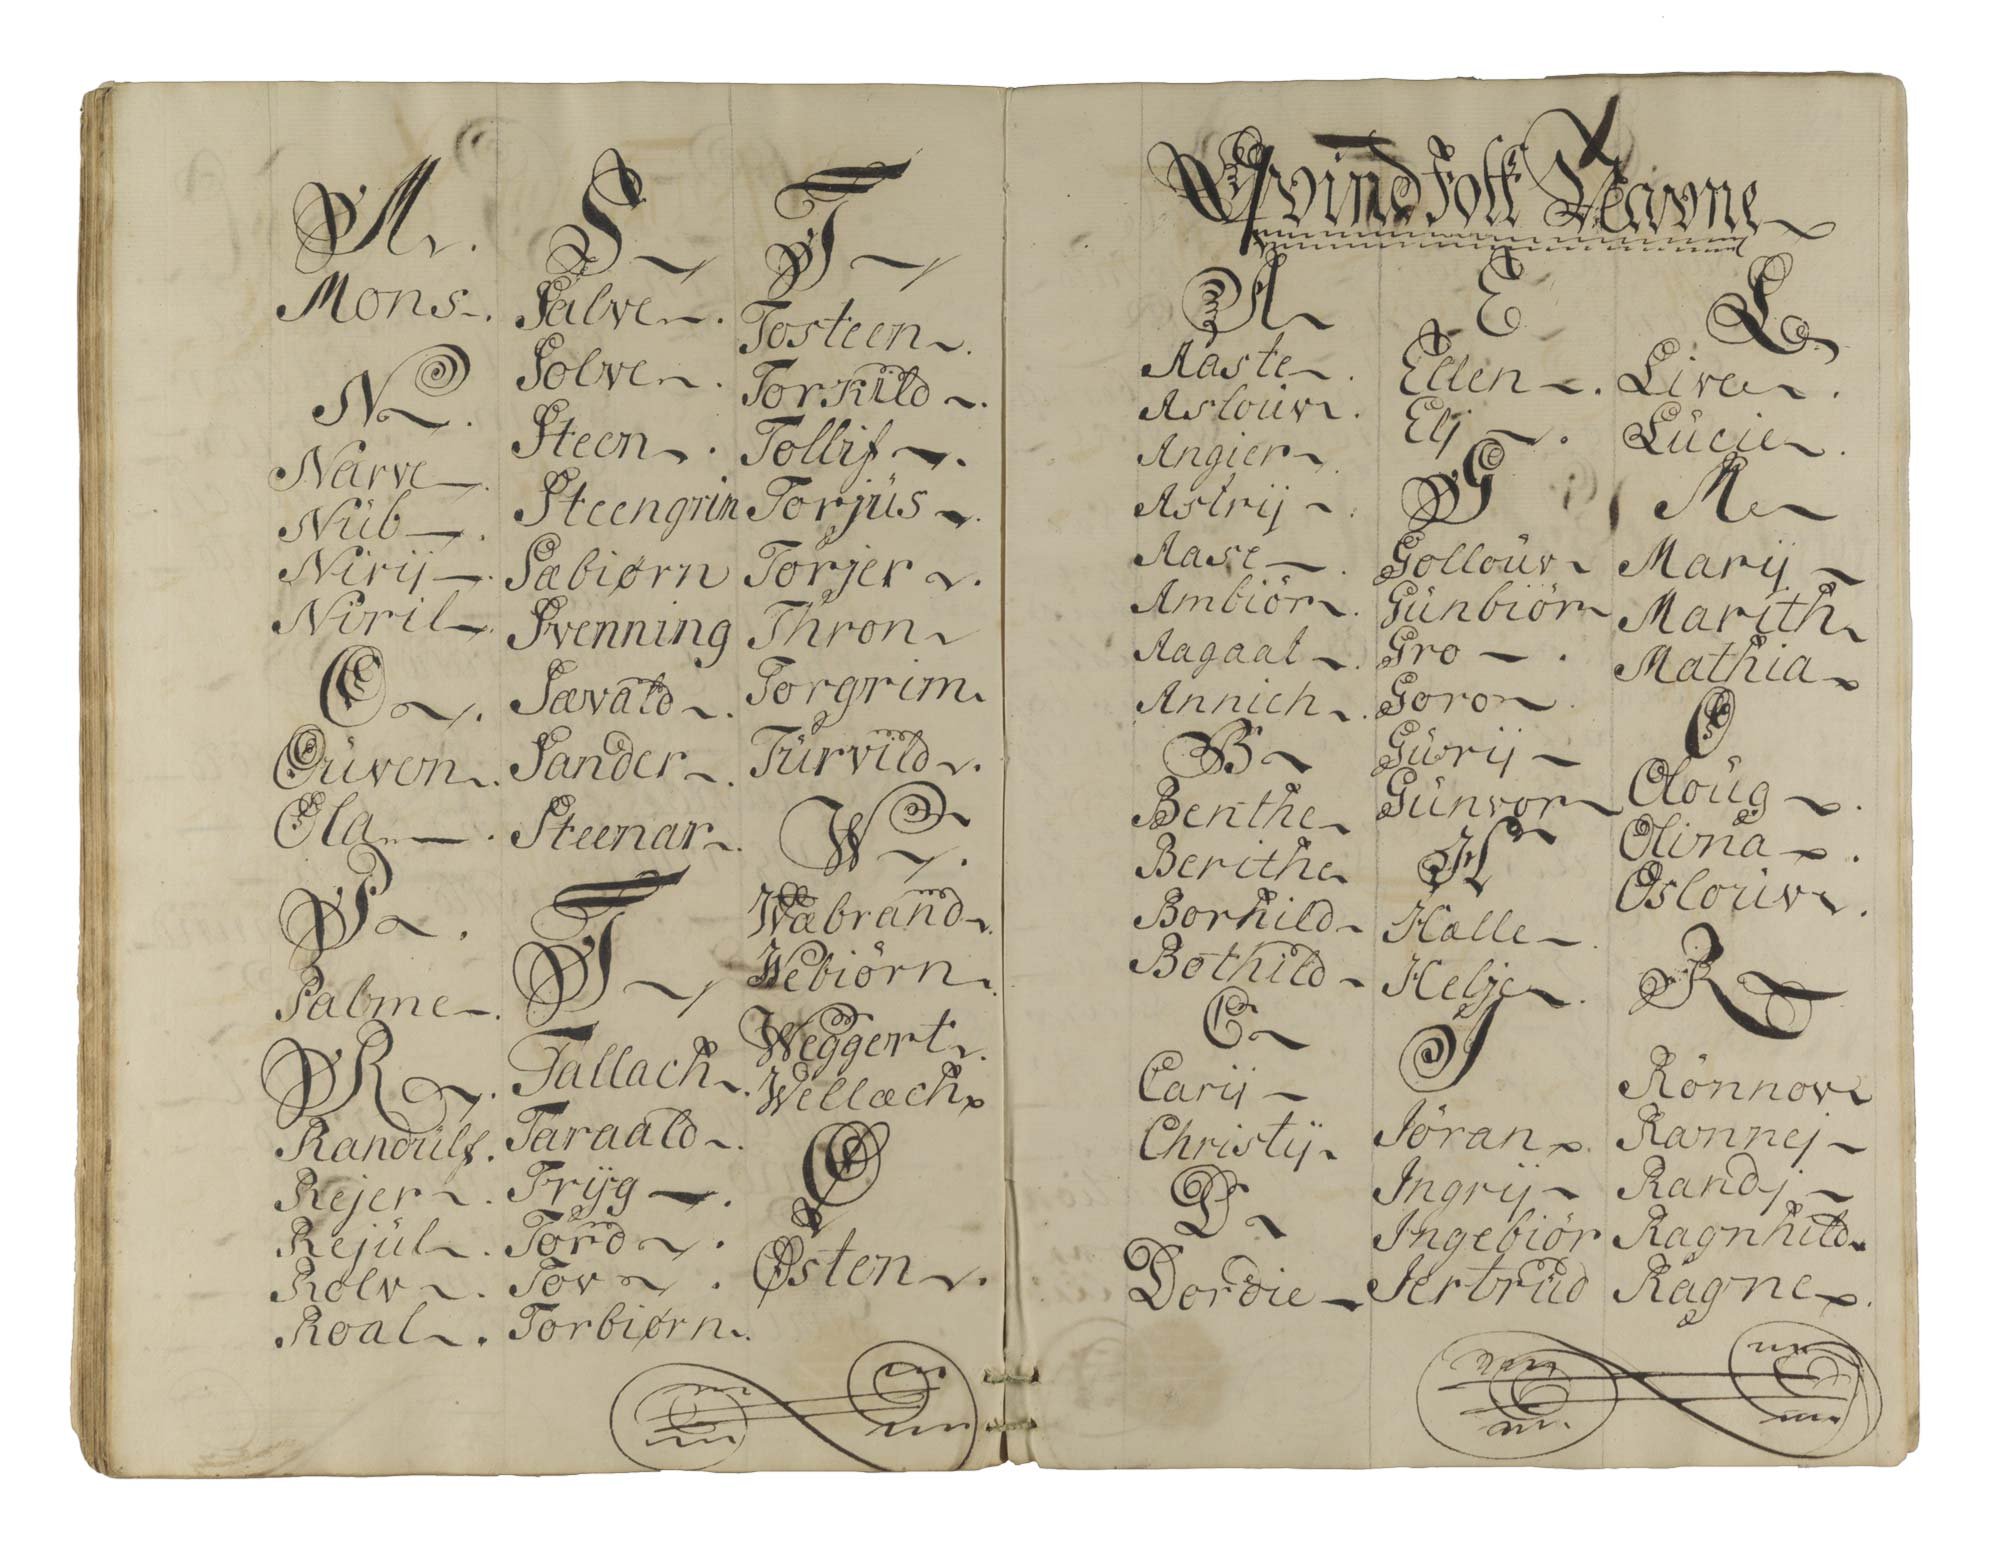 M
Mons
N
Narve
Nüb
Nirij
Niril
O
Oüven
Ola
P
Palme
R
Randülf
Rejer
Rejül
Rolv
Roal
S
Salve
Solve
Steen
Steengrim
Sæbiørn
Svenning
Sævald
Sander
Steenar
T
Tallach
Taraald
Trijg
Tord
Tov
Torbiørn
T
Tosteen
Torkild
Tollif
Torjüs
Torjer
Thron
Torgrim
Türvild
W
Wæbrand
Webiörn
Weggert
Wellæch
Ø
Østen
Qvind Folk Navne
A
Aaste
Aslouv
Angier
Astrij
Aase
Ambiör
Aagaat
Annich
B
Benthe
Berithe
Borhild
Bothild
C
Carij
Christij
D
Dordie
E
Ellen
Elj
G
Gollouv
Günbiör
Gro
Goro
Güvrij
Günvor
H
Hælle
Helje
J
Jöran
Jngrij
Jngebiör
Jertrüd
L
Live
Lücie
M
Marij
Marith
Mathia
O
Oloüg
Olina
Oslouv
R
Rönnov
Rannej
Randj
Ragnhild
Ragne